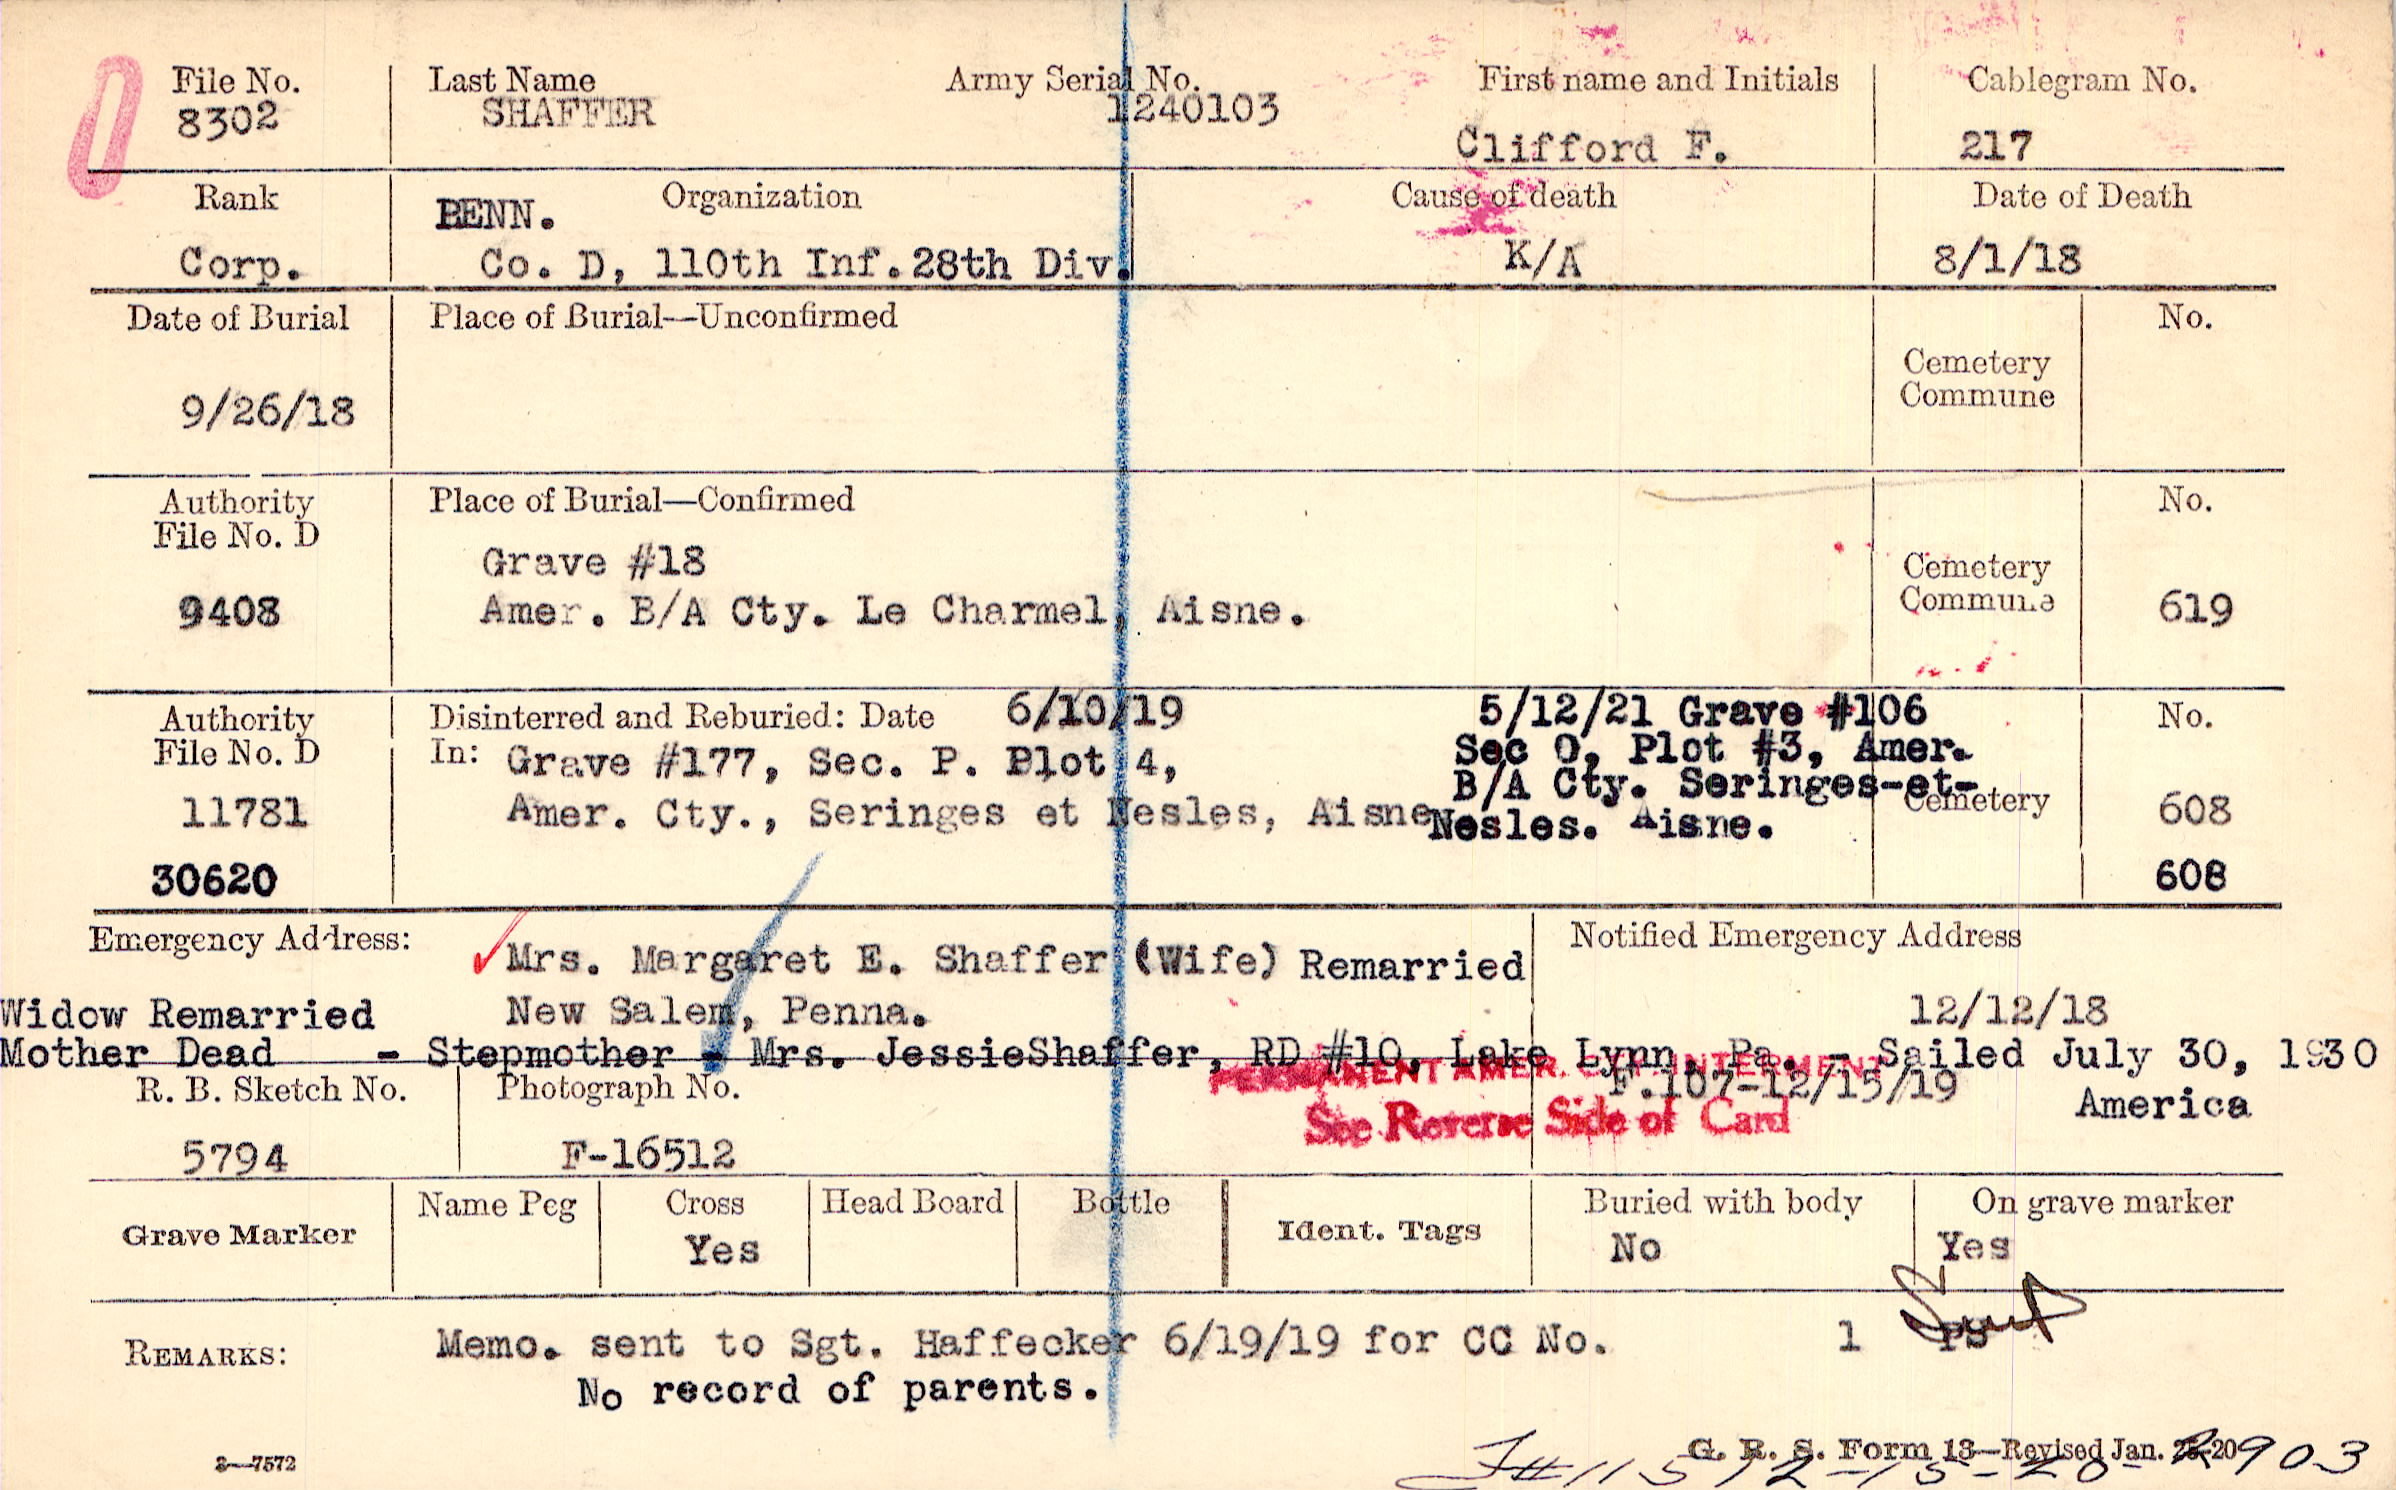 File No. Last Name Army Serial No. First name and Initials Cablegram No.
8302 SHAFFER 1240103 Clifford F. 217
Rank PENN. Organization Cause of death Date of Death
Corp. Co. D, 110th Inf. 28th Div. K/A 8/1/18
Date of Burial Place of Burial—Unconfirmed No.
Cemetery
Commune
9/26/18
Authority Place of Burial—Confirmed No.
File No. D
Grave #18 Cemetery
9408 Amer. B/A Cty. Le Charmel, Aisne. Commune 619
Authority Disinterred and Reburied: Date 6/10/19 5/12/21 Grave #106 No.
File No. D In: Grave #177, Sec. P. Plot 4, Sec O, Plot #3, Amer.
B/A Cty. Seringes-et-
11781 Amer. Cty., Seringes et Nesles, Aisne Nesles. Aisne. Cemetery 608
30620 608
Emergency Address: Mrs. Margaret E. Shaffer (Wife) Remarried Notified Emergency Address
Widow Remarried New Salem, Penna. 12/12/18
Mother Dead - Stepmother - Mrs. JessieShaffer, RD #10, Lake Lynn, Pa. - Sailed July 30, 1930
PERMANENT AMER. INTERMENT
R. B. Sketch No. Photograph No. F.107-12/15/19 America
See Reverse Side of Card
5794 F-16512
Grave Marker Name Peg Cross Head Board Bottle Ident. Tags Buried with body On grave marker
Yes No Yes
REMARKS: Memo. sent to Sgt. Haffecker 6/19/19 for CC No. 1 PS
No record of parents.
3—7572 G. R. S. Form 13—Revised Jan.